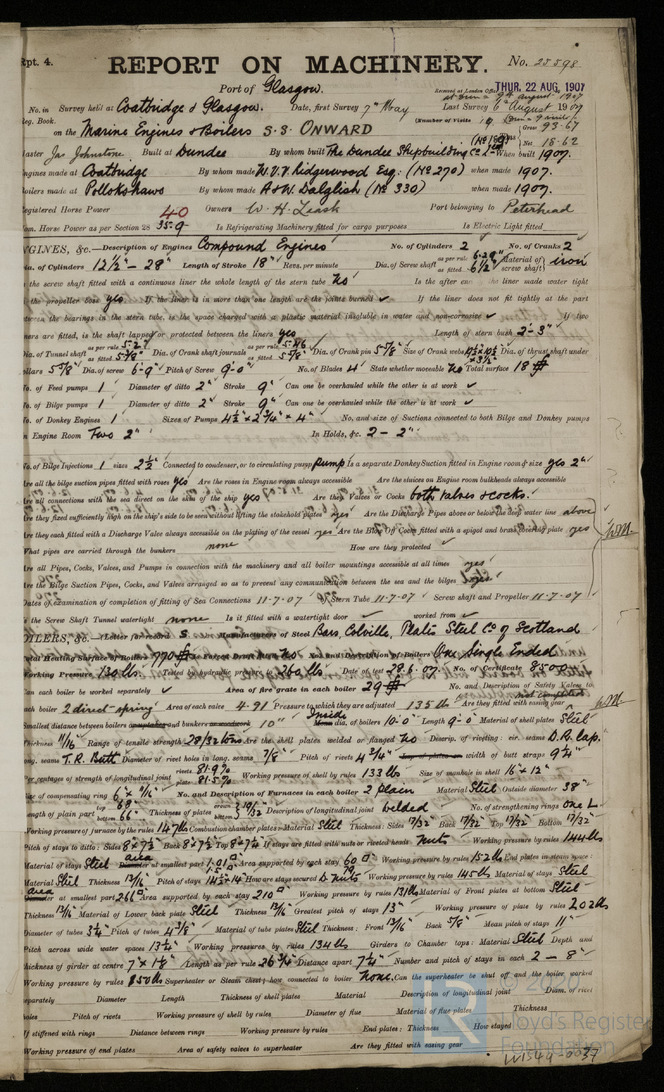 Rpt. 4.
REPORT ON MACHINERY. No. 25598
Port of Glasgow. THUR. 22 AUG. 1907
No. in Survey held at Coatbridge & Glasgow. Date, first Survey 7th May Last Survey 6th August 1907
Reg. Book. (Number of Visits
on the Marine Engines & Boilers S.S. ONWARD Gross 93.67
Net 18.62
Master Jas Johnstone Built at Dundee By whom built The Dundee Shipbuilding Co Ltd When built 1907.
Engines made at Coatbridge By whom made W. V. V. Lidgerwood Esq: (No 270) when made 1907.
Boilers made at Pollokshaws By whom made A & W. Dalglish (No 330) when made 1907.
Registered Horse Power 40 Owners W. H. Leask Port belonging to Peterhead
Nom. Horse Power as per Section 28 35.9 Is Refrigerating Machinery fitted for cargo purposes Is Electric Light fitted
ENGINES, &c.—Description of Engines Compound Engines No. of Cylinders 2 No. of Cranks 2
Dia. of Cylinders 12½" – 28" Length of Stroke 18" Revs. per minute Dia. of Screw shaft as per rule 6.28" as fitted 6½" Material of screw shaft iron
Is the screw shaft fitted with a continuous liner the whole length of the stern tube No Is the after end the liner made water tight
in the propeller boss yes If the liner is in more than one length are the joints burned If the liner does not fit tightly at the part
between the bearings in the stern tube, is the space charged with a plastic material insoluble in water and non-corrosive If two
liners are fitted, is the shaft lapped or protected between the liners yes Length of stern bush 2'-3"
Dia. of Tunnel shaft as per rule 5.27 as fitted 5⅜" Dia. of Crank shaft journals as per rule as fitted 5⅞" Dia. of Crank pin 5⅞" Size of Crank webs Dia. of thrust shaft under
collars 5⅞" Dia. of screw 6'-9" Pitch of Screw 9'-0" No. of Blades 4 State whether moveable No Total surface 18
No. of Feed pumps 1 Diameter of ditto 2" Stroke 9" Can one be overhauled while the other is at work
No. of Bilge pumps 1 Diameter of ditto 2" Stroke 9" Can one be overhauled while the other is at work
No. of Donkey Engines 1 Sizes of Pumps 4½" × 2¾" × 4" No. and size of Suctions connected to both Bilge and Donkey pumps
In Engine Room Two 2" In Holds, &c. 2 – 2"
No. of Bilge Injections 1 sizes 2½" Connected to condenser, or to circulating pump pump Is a separate Donkey Suction fitted in Engine room & size yes 2"
Are all the bilge suction pipes fitted with roses yes Are the roses in Engine room always accessible Are the sluices on Engine room bulkheads always accessible
Are all connections with the sea direct on the skin of the ship yes Are they Valves or Cocks both valves & cocks.
Are they fixed sufficiently high on the ship's side to be seen without lifting the stokehold plates yes Are the Discharge Pipes above or below the deep water line above
Are they each fitted with a Discharge Valve always accessible on the plating of the vessel yes Are the Blow Off Cocks fitted with a spigot and brass covering plate yes
What pipes are carried through the bunkers none How are they protected
Are all Pipes, Cocks, Valves, and Pumps in connection with the machinery and all boiler mountings accessible at all times yes
Are the Bilge Suction Pipes, Cocks, and Valves arranged so as to prevent any communication between the sea and the bilges yes
Dates of examination of completion of fitting of Sea Connections 11-7-07 Stern Tube 11-7-07 Screw shaft and Propeller 11-7-07
Is the Screw Shaft Tunnel watertight none Is it fitted with a watertight door worked from
BOILERS, &c.—(Letter for record S Manufacturers of Steel Bars, Colville, Plates Steel Co of Scotland
Total Heating Surface of Boilers 770 Is Forced Draft fitted No No. and Description of Boilers One Single Ended
Working Pressure 130 lbs Tested by hydraulic pressure to 260 lbs Date of test 28.6.07 No. of Certificate 8500
Can each boiler be worked separately Area of fire grate in each boiler 29 No. and Description of Safety Valves to
each boiler 2 direct spring Area of each valve 4.91 Pressure to which they are adjusted 135 lb Are they fitted with easing gear
Smallest distance between boilers and bunkers 10" Inside dia. of boilers 10'-0" Length 9'-0" Material of shell plates Steel
Thickness 11/16" Range of tensile strength 28/32 tons Are the shell plates welded or flanged No Descrip. of riveting: cir. seams D.R. lap.
long. seams T.R. Butt Diameter of rivet holes in long. seams ⅞" Pitch of rivets 4¾" width of butt straps 9¼"
Per centages of strength of longitudinal joint rivets 81.9% plate 81.5% Working pressure of shell by rules 133 lb Size of manhole in shell 16" × 12"
Size of compensating ring 6" × 11/16" No. and Description of Furnaces in each boiler 2 plain Material Steel Outside diameter 38"
Length of plain part top 68 bottom 66 Thickness of plates 19/32 Description of longitudinal joint Welded No. of strengthening rings one L
Working pressure of furnace by the rules 147 lb Combustion chamber plates: Material Steel Thickness: Sides 17/32 Back 17/32 Top 17/32 Bottom 17/32
Pitch of stays to ditto: Sides 8 × 7½ Back 8 × 7½ Top 8 × 7½ If stays are fitted with nuts or riveted heads Nuts Working pressure by rules 144 lb
Material of stays Steel area at smallest part 1.01 Area supported by each stay 60 Working pressure by rules 152 lb End plates in steam space:
Material Steel Thickness 13/16 Pitch of stays 14½ × 14 How are stays secured D. Nuts Working pressure by rules 145 lb Material of stays Steel
area at smallest part Area supported by each stay 210 Working pressure by rules 131 lb Material of Front plates at bottom Steel
Thickness 13/16 Material of Lower back plate Steel Thickness 13/16 Greatest pitch of stays 13" Working pressure of plate by rules 202 lb
Diameter of tubes 3¼" Pitch of tubes 4⅜" Material of tube plates Steel Thickness: Front 13/16" Back ⅝" Mean pitch of stays 11"
Pitch across wide water spaces 13¼" Working pressures by rules 134 lb Girders to Chamber tops: Material Steel Depth and
thickness of girder at centre 7" × 1⅛" Length as per rule 26¾" Distance apart 7¼" Number and pitch of stays in each 2 – 8"
Working pressure by rules 150 lb Superheater or Steam chest; how connected to boiler None. Can the superheater be shut off and the boiler worked
separately Diameter Length Thickness of shell plates Material Description of longitudinal joint Diam. of rivet
holes Pitch of rivets Working pressure of shell by rules Diameter of flue Material of flue plates Thickness
If stiffened with rings Distance between rings Working pressure by rules End plates: Thickness How stayed
Working pressure of end plates Area of safety valves to superheater Are they fitted with easing gear
Lloyd's Register
Foundation
W1549-0037